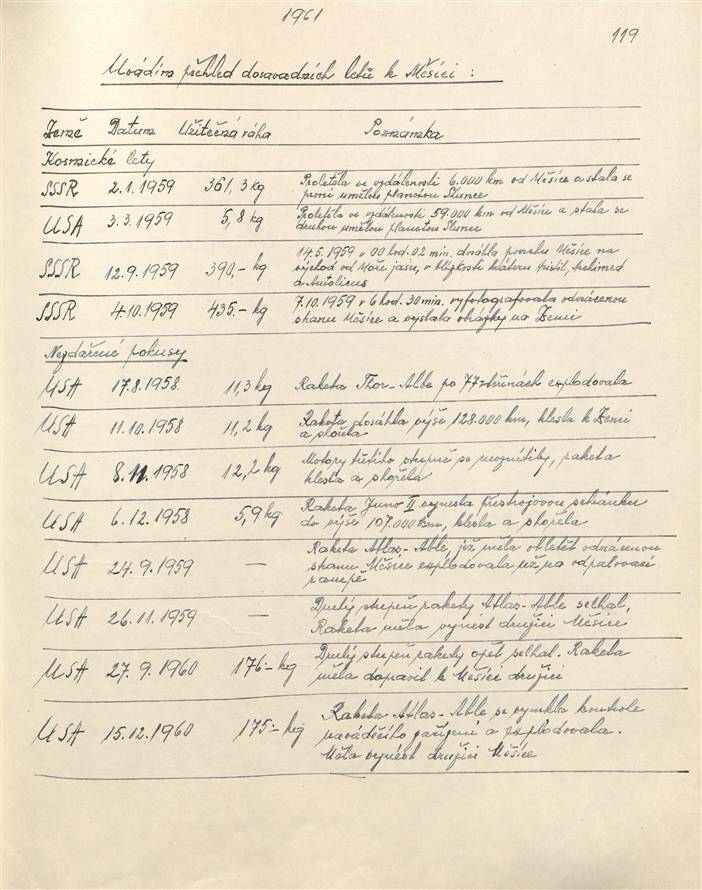 1961
119
Uvádím přehled dosavadních letů k Měsíci :
Země Datum Užitečná váha Poznámka
Kosmické lety
SSSR 2.1.1959 361,3 kg Proletěla ve vzdálenosti 6.000 km od Měsíce a stala se
první umělou planetou Slunce
USA 3.3.1959 5,8 kg Proletěla ve vzdálenosti 59.000 km od Měsíce a stala se
druhou umělou planetou Slunce
14.5.1959 v 00 hod. 02 min. dosáhla povrchu Měsíce na
SSSR 12.9.1959 390,- kg východ od Moře jasu, v blízkosti kráteru Aristil, Archimed
a Autolicus
SSSR 4.10.1959 435.- kg 7.10.1959 v 6 hod. 30 min. vyfotografovala odvrácenou
stranu Měsíce a vyslala obrázky na Zemi
Nezdařené pokusy
USA 17.8.1958. 11,3 kg Raketa Thor-Able po 77 vteřinách explodovala
USA 11.10.1958 11,2 kg Raketa dosáhla výše 128.000 km, klesla k Zemi
a shořela
USA 8.11.1958 12,2 kg Motory třetího stupně se nevznítily, raketa
klesla a shořela
USA 6.12.1958 5,9 kg Raketa Juno II vynesla přístrojovou schránku
do výše 107.000 km, klesla a shořela
Raketa Atlas-Able, jež měla obletět odvrácenou
USA 24.9.1959 — stranu Měsíce explodovala už na odpalovací
rampě
USA 26.11.1959 — Druhý stupeň rakety Atlas-Able selhal,
Raketa měla vynést družici Měsíce
USA 27.9.1960 176.- kg Druhý stupeň rakety opět selhal. Raketa
měla dopravit k Měsíci družici
Raketa Atlas-Able se vymkla kontrole
USA 15.12.1960 175.- kg naváděcího zařízení a explodovala.
Měla vynést družici Měsíce